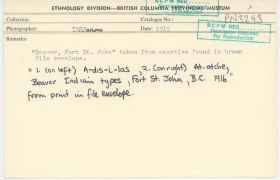 ETHNOLOGY DIVISION—BRITISH COLUMBIA PROVINCIAL MUSEUM
Collection: Catalogue No.: PN3293
Photographer: Date: 1915
BCPM
Permission Required
for Reproduction
Remarks:
"Beaver, Fort St. John" taken from negative found in brown
file envelope.
"1. (on left) A-dis-L-las 2. (on right) At-atche,
Beaver Indian types, Fort St. John, B.C. 1916"
from print in file envelope.